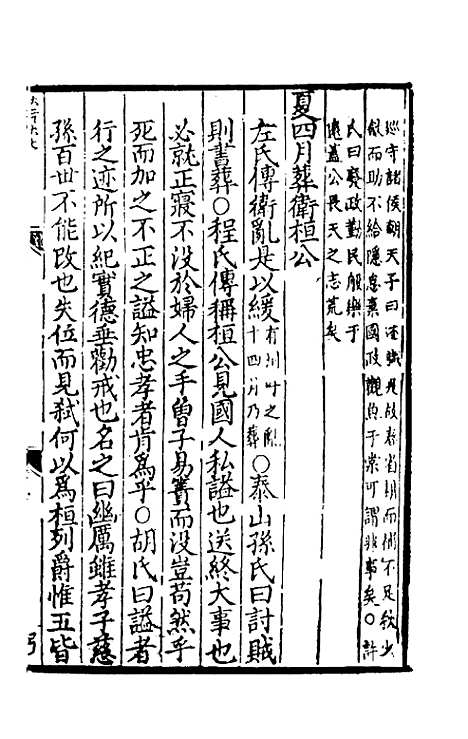 巡守諸侯朝天子曰述職是故春省耕而補不足秋省
斂而助不給隱怠棄國政觀魚于棠可謂非事矣○許
氏曰賢政勤民般樂于
遠蓋公畏天之志荒矣
夏四月葬衛桓公
左氏傳衛亂是以緩有州吁之亂十四月乃葬○泰山孫氏曰討賊
則書葬○程氏傳稱桓公見國人私謚也送終大事也
必就正寢不没於婦人之手曾子易簀而没豈苟然乎
死而加之不正之謚知忠孝者肯爲乎○胡氏曰謚者
行之迹所以紀實德垂勸戒也名之曰幽厲雖孝子慈
孫百世不能改也失位而見弑何以爲桓列爵惟五皆